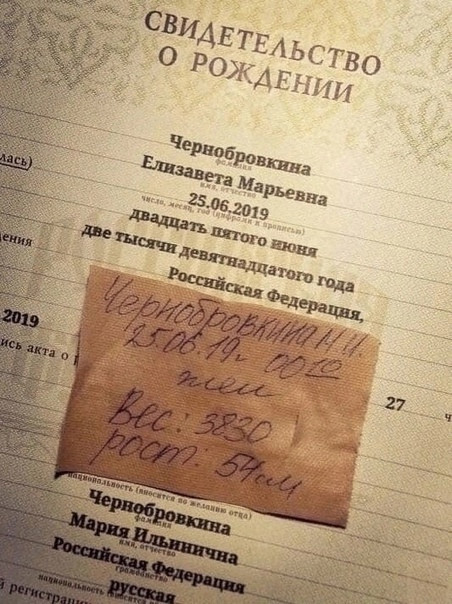 СВИДЕТЕЛЬСТВО
О РОЖДЕНИИ
Чернобровкина
фамилия
лась)
Елизавета Марьевна
имя, отчество
25.06.2019
число, месяц, год (цифрами и прописью)
двадцать пятого июня
ения
две тысячи девятнадцатого года
Российская Федерация,
2019
ись акта о
27
Чернобровкина М.И.
25.06.19г. 00 12
жен
Вес: 3830
рост: 54 см
национальность (вносится по желанию отца)
Чернобровкина
фамилия
Мария Ильинична
имя, отчество
Российская Федерация
гражданство
русская
национальность
й регистрации